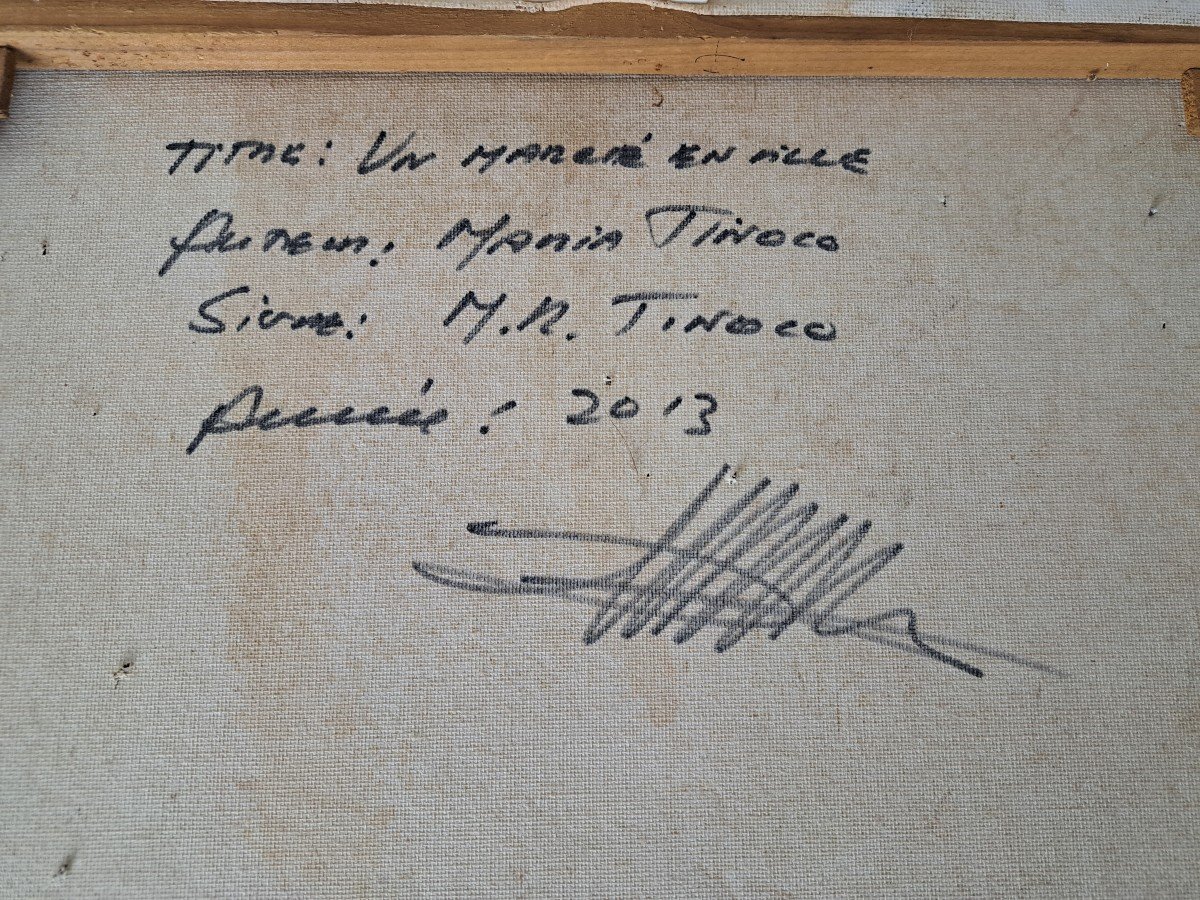 TITRE: UN MARCHÉ EN VILLE
Auteur: Maria Tinoco
Signe: M.R. Tinoco
Année: 2013